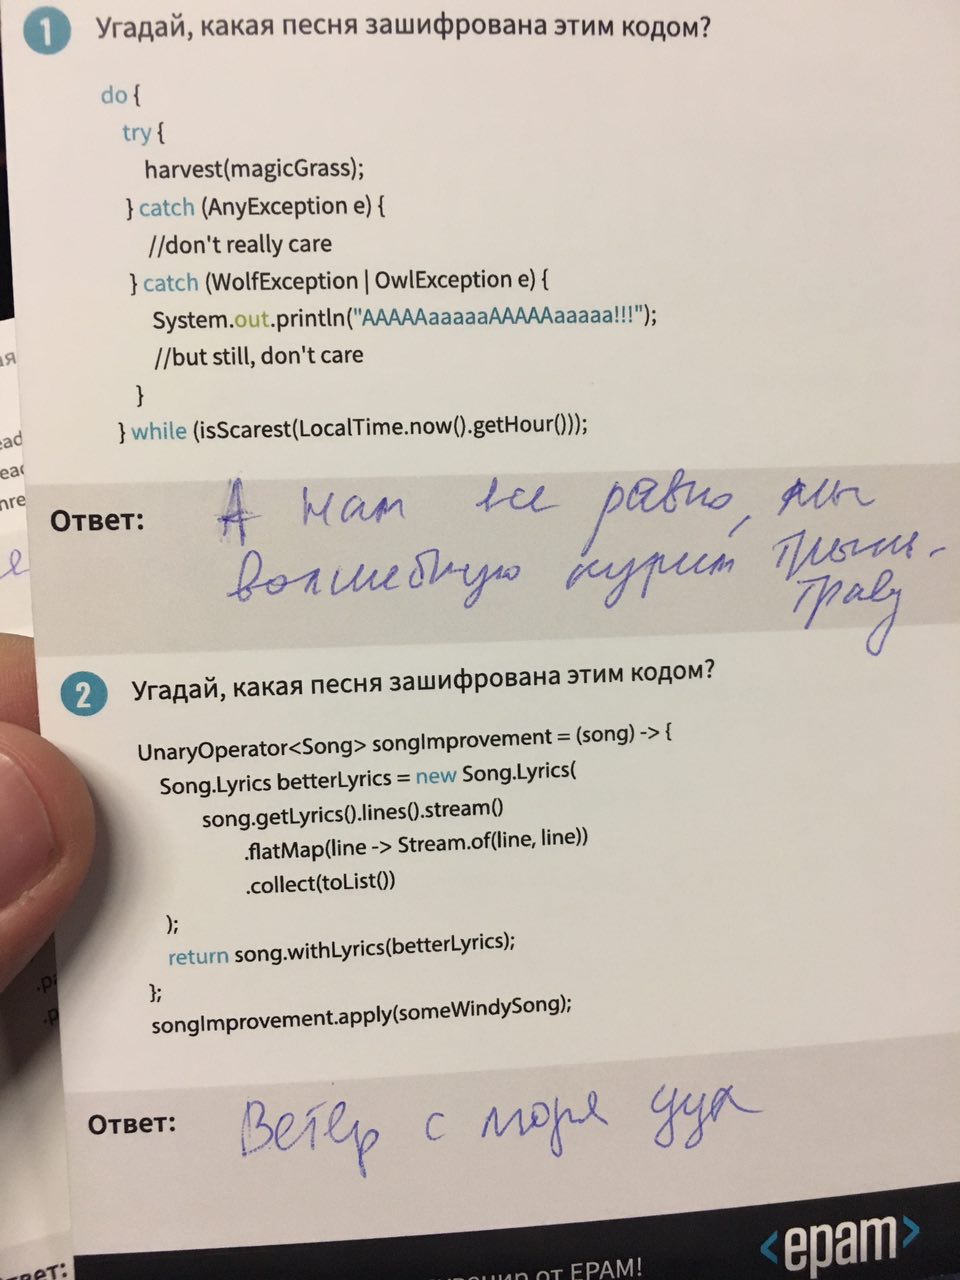 1 Угадай, какая песня зашифрована этим кодом?
do {
try {
harvest(magicGrass);
} catch (AnyException e) {
//don't really care
} catch (WolfException | OwlException e) {
System.out.println("AAAAAaaaaaAAAAAaaaaa!!!");
//but still, don't care
}
} while (isScarest(LocalTime.now().getHour()));
Ответ: А нам все равно, мы
волшебную курим трын-
траву
2 Угадай, какая песня зашифрована этим кодом?
UnaryOperator<Song> songImprovement = (song) -> {
Song.Lyrics betterLyrics = new Song.Lyrics(
song.getLyrics().lines().stream()
.flatMap(line -> Stream.of(line, line))
.collect(toList())
);
return song.withLyrics(betterLyrics);
};
songImprovement.apply(someWindySong);
Ответ: Ветер с моря дул
<epam>
от EPAM!